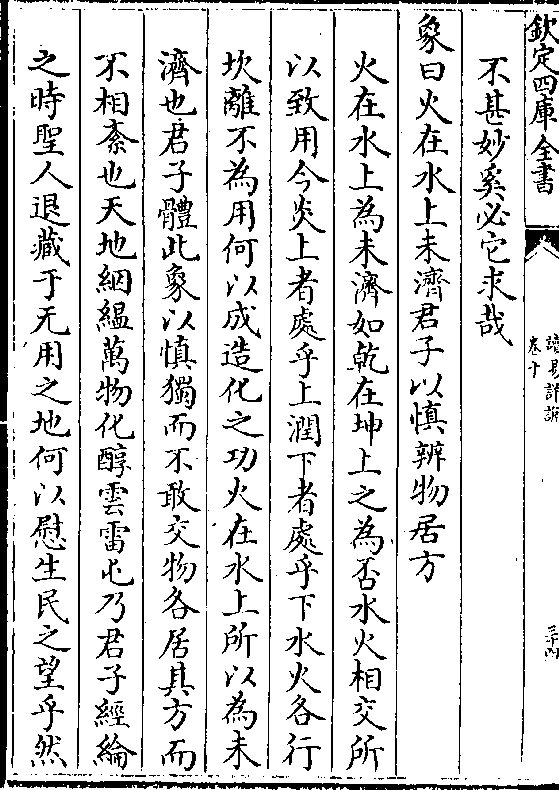 欽定四庫全書
讀易詳說
卷十
三十四
不甚妙奚必它求哉
象曰火在水上未濟君子以慎辨物居方
火在水上為未濟如乾在坤上之為否水火相交所
以致用今炎上者處乎上潤下者處乎下水火各行
坎離不為用何以成造化之功火在水上所以為未
濟也君子體此象以慎獨而不敢交物各居其方而
不相紊也天地絪縕萬物化醇雲雷屯乃君子經綸
之時聖人退藏于无用之地何以慰生民之望乎然